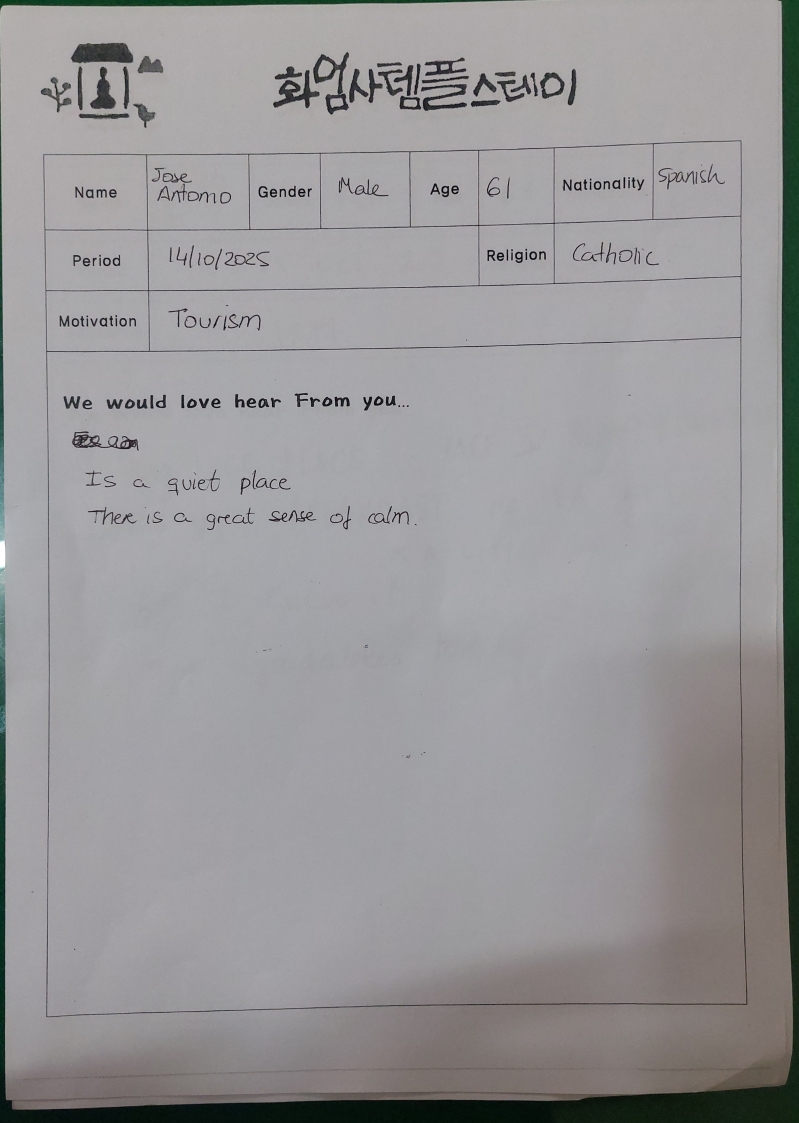 화엄사템플스테이
Name Jose Antonio Gender Male Age 61 Nationality Spanish
Period 14/10/2025 Religion Catholic
Motivation Tourism
We would love hear From you...
Is a quiet place
There is a great sense of calm.